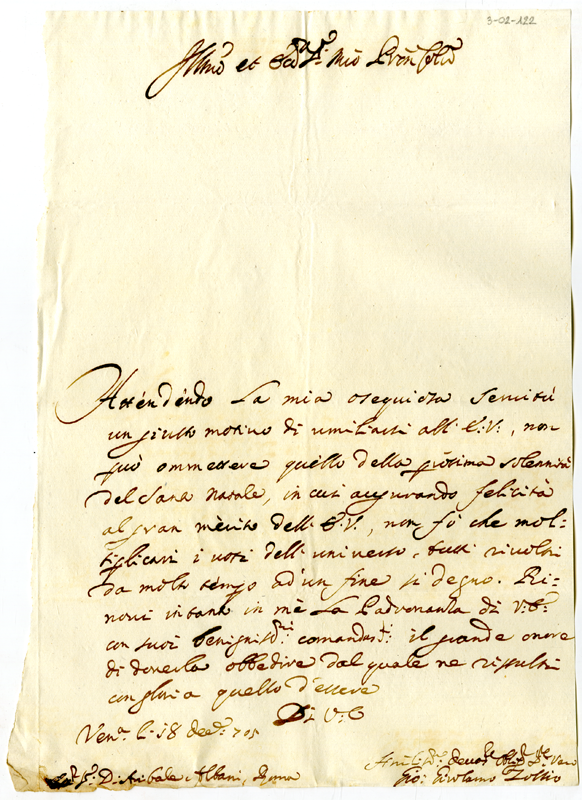 3-02-122
Illmo et Mio Pron Colmo
Attendendo la mia osequiosa servitù
un giusto motivo di umiliarsi all' E:V:, non
può ommettere quello della prosima solennità
del Santo Natale, in cui augurando felicità
al gran mèrito dell' E.V., non fò che mol=
tiplicarsi i voti dell' universo, tutti rivolti
da molto tempo ad' un fine sì degno. Ri=
novi intanto in mè la Padronanza di V:E:
con suoi benignismi comandati: il grande onore
di doverla obbedire dal quale ne rissulti
con gloria quello d'essere
Di V:E
Vena li 18 decê 705
D: Anibale Albani, Roma
Gio: Girolamo